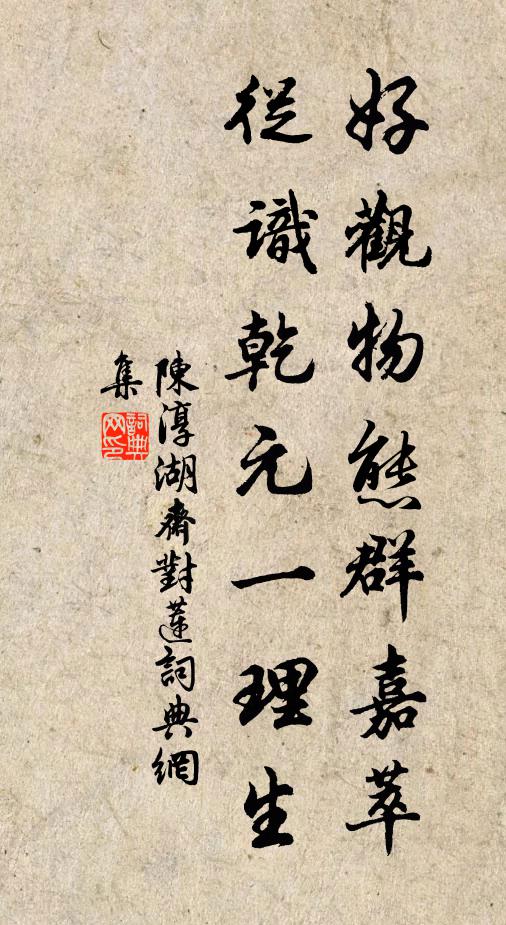 好觀物態群嘉萃
從識乾元一理生
陳淳湖齋對蓮詞典網
集
詞典
网印